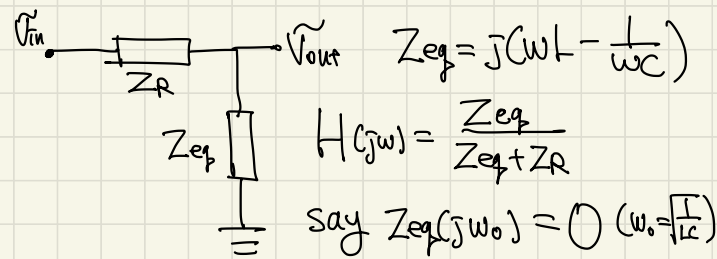 Ṽin
Z_R
Ṽout
Z_eq
Z_eq = j(ωL - 1/ωC)
H(jω) = Z_eq / (Z_eq + Z_R)
say Z_eq(jω₀) = 0 (ω₀ = √(1/LC))